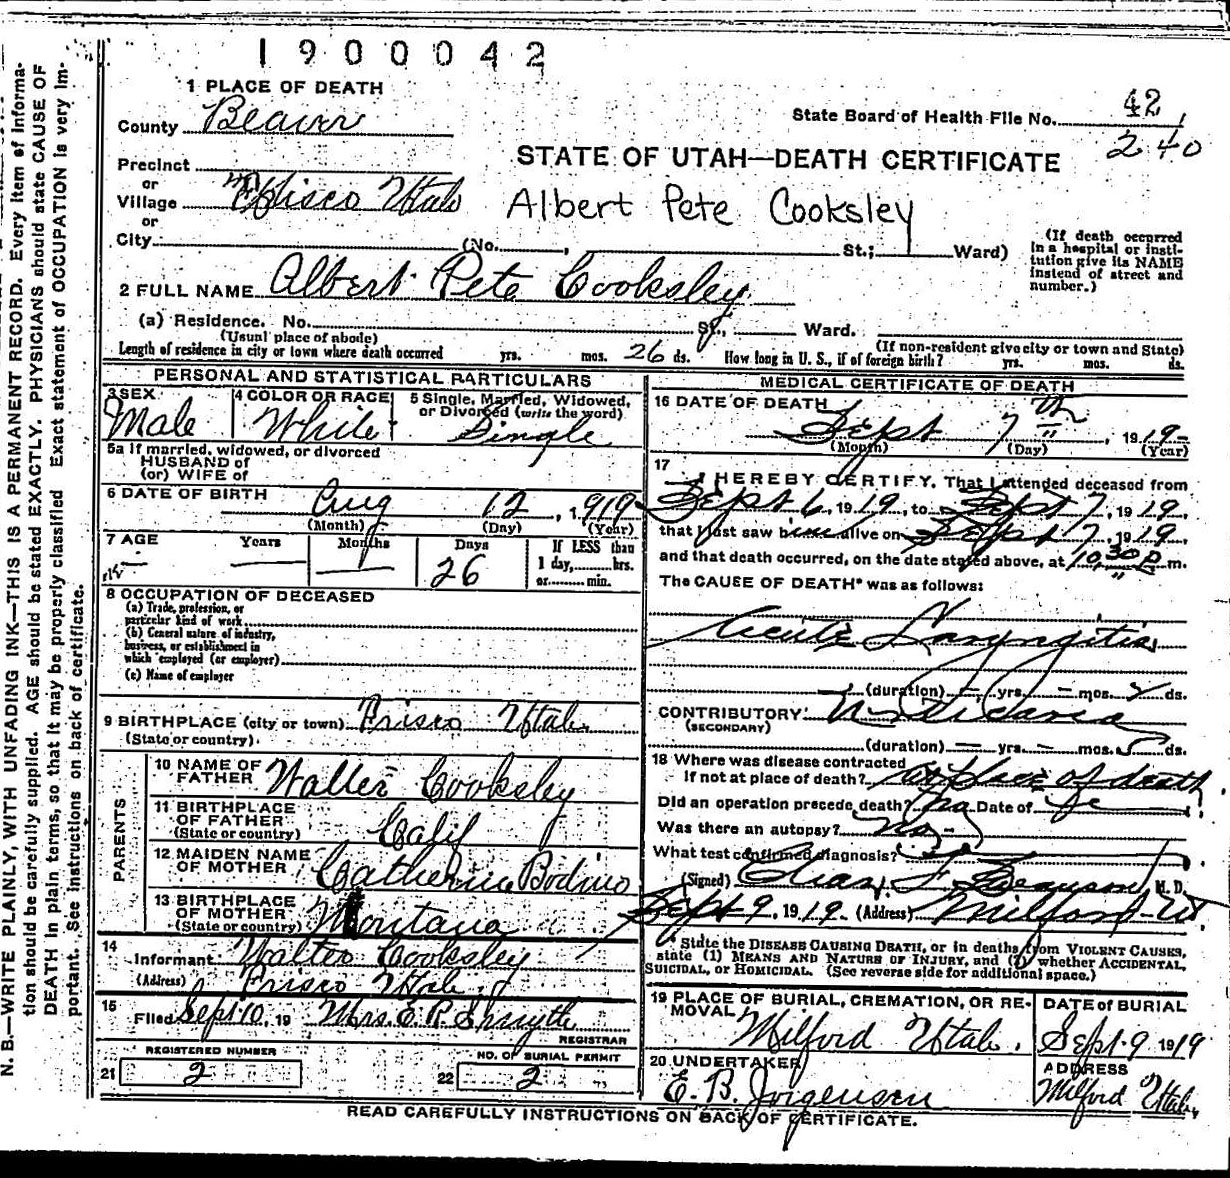 1900042
1 PLACE OF DEATH
County Beaver
State Board of Health File No. 42
240
STATE OF UTAH—DEATH CERTIFICATE
Precinct
or
Village Frisco Utah
Albert Pete Cooksley
or
City (No. , St.; Ward)
(If death occurred in a hospital or institution give its NAME instead of street and number.)
2 FULL NAME Albert Pete Cooksley
(a) Residence. No. St., Ward.
(Usual place of abode) (If non-resident give city or town and State)
Length of residence in city or town where death occurred yrs. mos. 26 ds. How long in U. S., if of foreign birth? yrs. mos. ds.
PERSONAL AND STATISTICAL PARTICULARS
3 SEX
Male
4 COLOR OR RACE
White
5 Single, Married, Widowed,
or Divorced (write the word)
Single
5a If married, widowed, or divorced
HUSBAND of
(or) WIFE of
6 DATE OF BIRTH Aug 12, 1919
(Month) (Day) (Year)
7 AGE Years Months Days
— 1 26
If LESS than
1 day, hrs.
or min.
8 OCCUPATION OF DECEASED
(a) Trade, profession, or
particular kind of work
(b) General nature of industry,
business, or establishment in
which employed (or employer)
(c) Name of employer
9 BIRTHPLACE (city or town) Frisco Utah
(State or country)
PARENTS
10 NAME OF
FATHER Walter Cooksley
11 BIRTHPLACE
OF FATHER
(State or country) Calif
12 MAIDEN NAME
OF MOTHER Catherine Bodino
13 BIRTHPLACE
OF MOTHER
(State or country) Montana
14
Informant Walter Cooksley
(Address) Frisco Utah
15
Filed Sept 10, 19 Mrs. E. R. Smyth
REGISTRAR
REGISTERED NUMBER
21 2
NO. OF BURIAL PERMIT
22 2
MEDICAL CERTIFICATE OF DEATH
16 DATE OF DEATH
Sept 7th, 1919
(Month) (Day) (Year)
17
I HEREBY CERTIFY, That I attended deceased from
Sept 6, 1919, to Sept 7, 1919,
that I last saw him alive on Sept 7, 1919,
and that death occurred, on the date stated above, at 10,30 P m.
The CAUSE OF DEATH* was as follows:
Acute Laryngitis
(duration) — yrs. — mos. 2 ds.
CONTRIBUTORY
(SECONDARY)
(duration) — yrs. — mos. 5 ds.
18 Where was disease contracted
if not at place of death? at place of death
Did an operation precede death? no Date of
Was there an autopsy? no
What test confirmed diagnosis?
(Signed) Chas. F. Swanson, M. D.
Sept 9, 1919 (Address) Milford Ut
* State the DISEASE CAUSING DEATH, or in deaths from VIOLENT CAUSES,
state (1) MEANS AND NATURE OF INJURY, and (2) whether ACCIDENTAL,
SUICIDAL, or HOMICIDAL. (See reverse side for additional space.)
19 PLACE OF BURIAL, CREMATION, OR RE-
MOVAL Milford Utah.
DATE of BURIAL
Sept. 9 1919
20 UNDERTAKER
E. B. Jorgensen
ADDRESS
Milford Utah
READ CAREFULLY INSTRUCTIONS ON BACK OF CERTIFICATE.
N. B.—WRITE PLAINLY, WITH UNFADING INK—THIS IS A PERMANENT RECORD. Every item of informa-
tion should be carefully supplied. AGE should be stated EXACTLY. PHYSICIANS should state CAUSE OF
DEATH in plain terms, so that it may be properly classified. Exact statement of OCCUPATION is very im-
portant. See instructions on back of certificate.